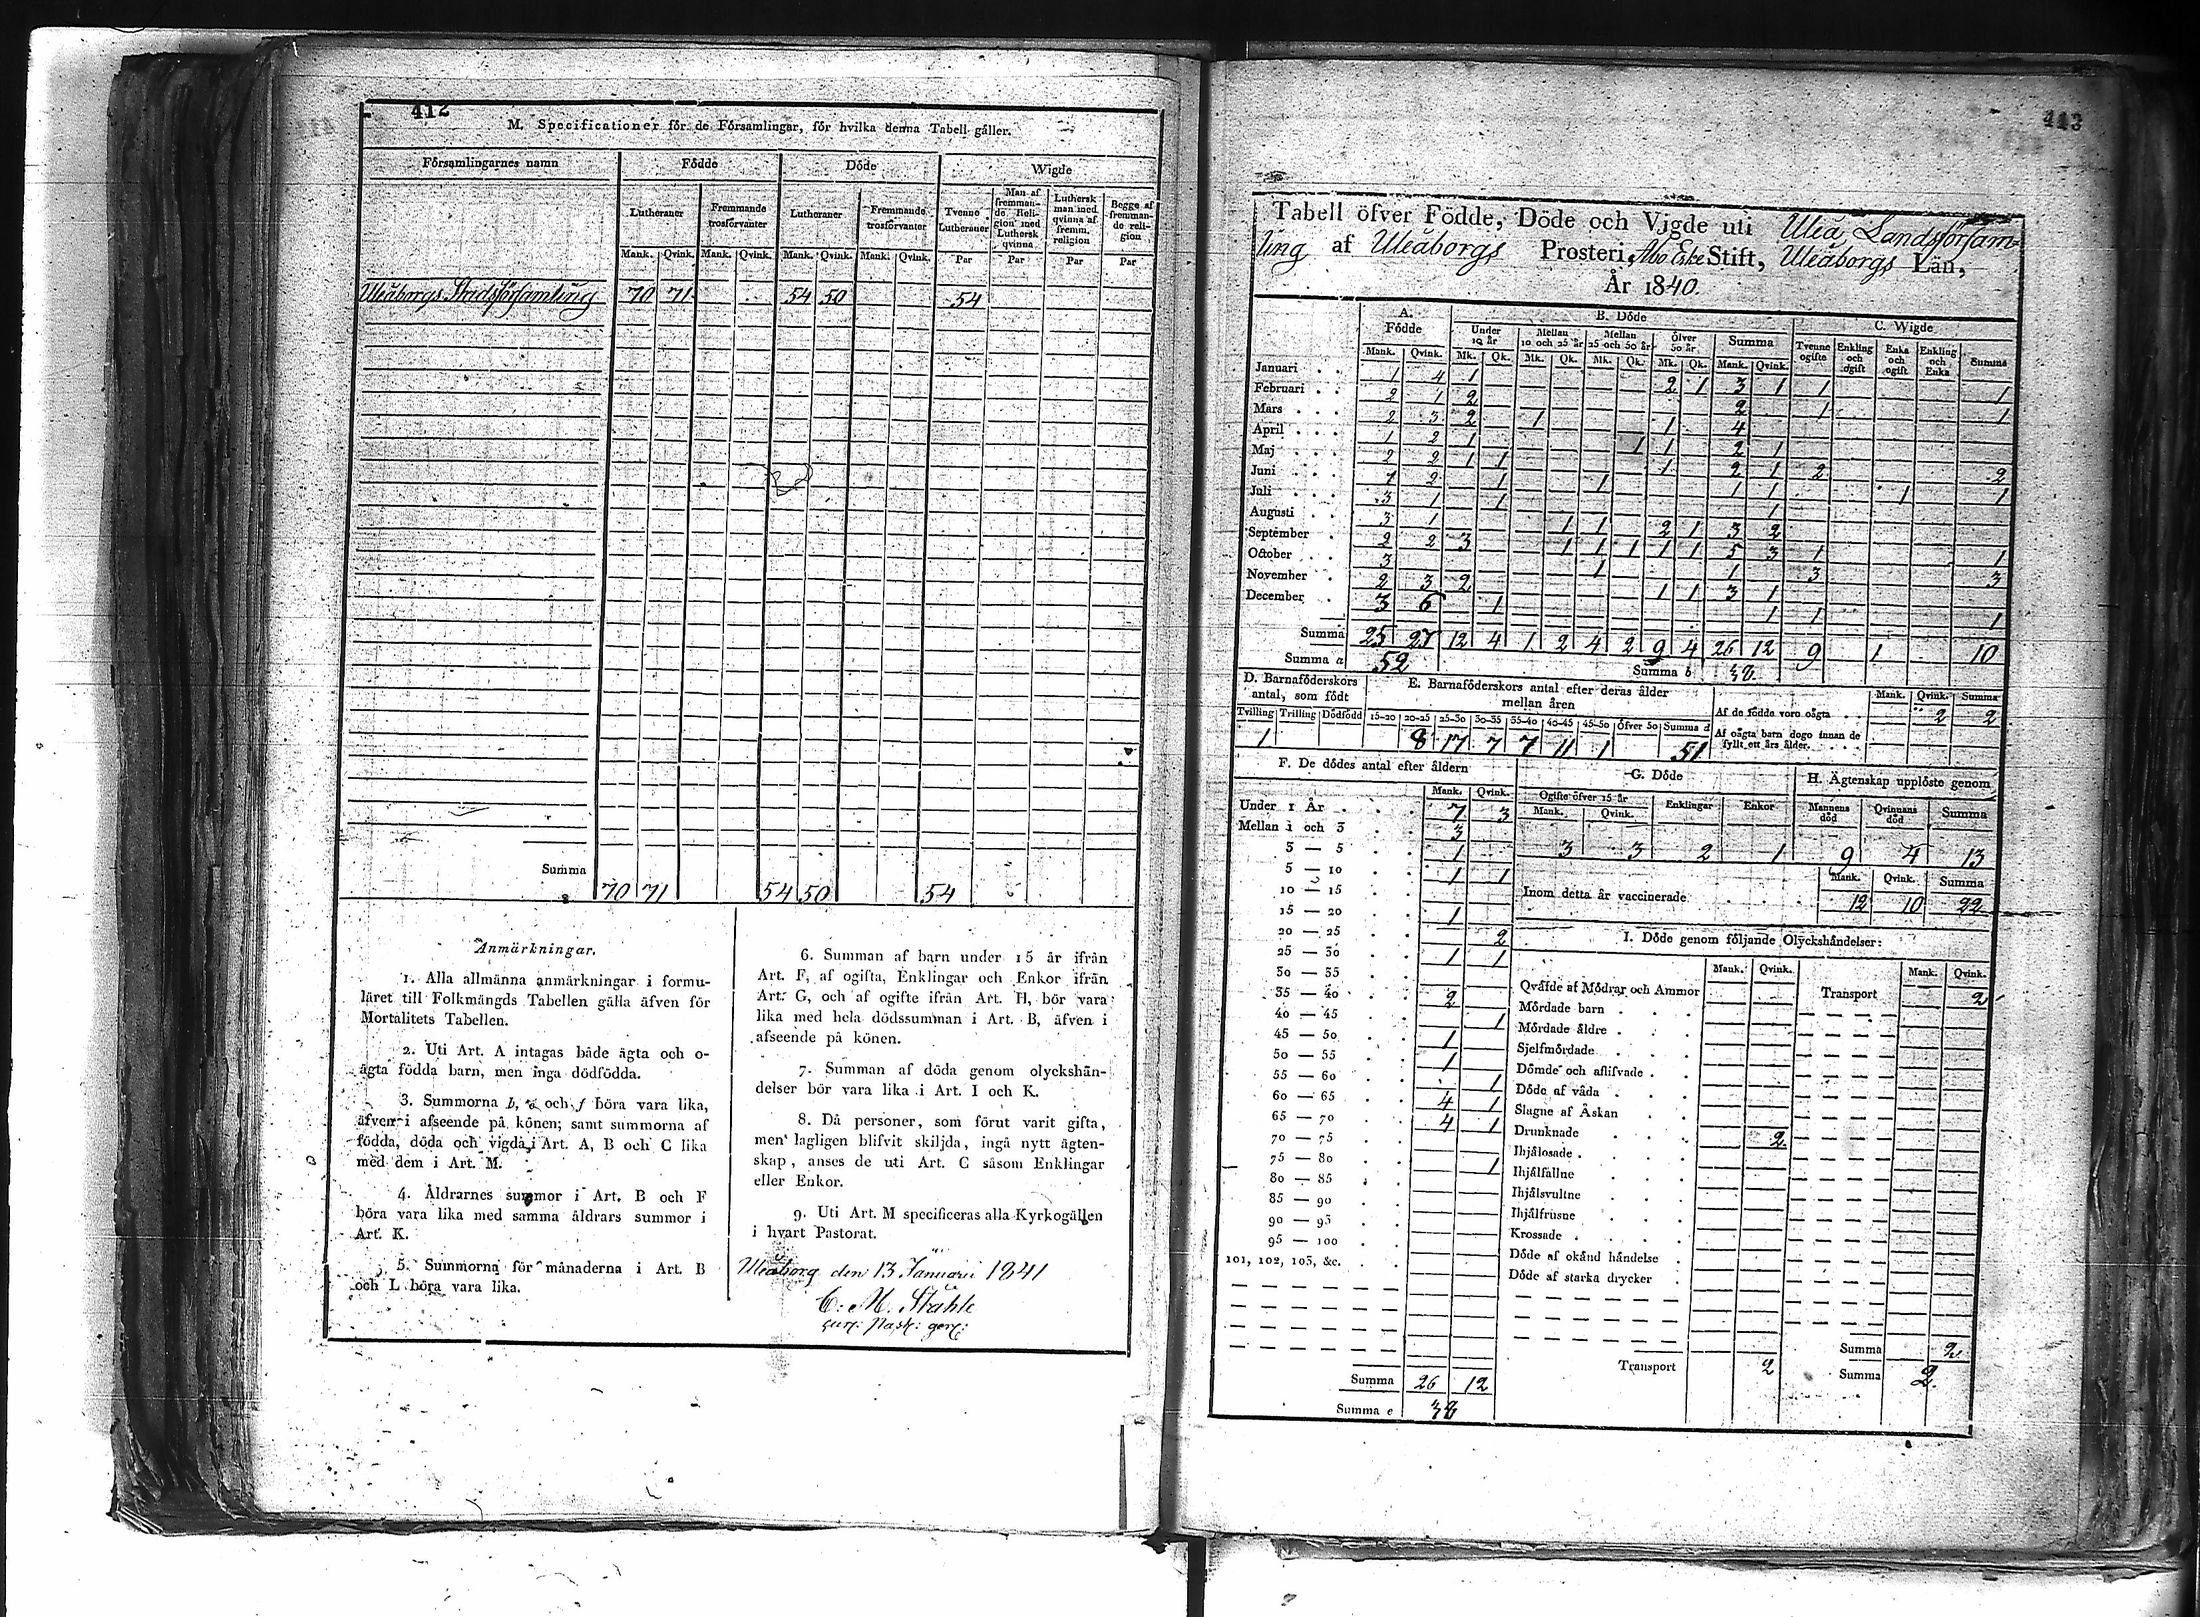 412
M. Specificationer för de Församlingar, för hvilka denna Tabell gäller.
Församlingarnes namn | Födde | Döde | Wigde
Lutheraner | Fremmande trosförvanter | Lutheraner | Fremmande trosförvanter | Tvenne Lutheraner | Man af fremmande Religion med Luthersk qvinna | Luthersk man med qvinna af fremm. religion | Begge af fremmande religion
Mank. Qvink. Mank. Qvink. Mank. Qvink. Mank. Qvink. Par Par Par Par
Uleåborgs Stadsförsamling 70 71 54 50 54
Summa 70 71 54 50 54
Anmärkningar.
1. Alla allmänna anmärkningar i formu-
läret till Folkmängds Tabellen gälla äfven för
Mortalitets Tabellen.
2. Uti Art. A intagas både ägta och o-
ägta födda barn, men inga dödfödda.
3. Summorna b, e och f böra vara lika,
äfven i afseende på könen; samt summorna af
födda, döda och vigda i Art. A, B och C lika
med dem i Art. M.
4. Åldrarnes summor i Art. B och F
böra vara lika med samma åldrars summor i
Art. K.
5. Summorna för månaderna i Art. B
och L böra vara lika.
6. Summan af barn under 15 år ifrån
Art. F, af ogifta, Enklingar och Enkor ifrån
Art. G, och af ogifte ifrån Art. H, bör vara
lika med hela dödssumman i Art. B, äfven i
afseende på könen.
7. Summan af döda genom olyckshän-
delser bör vara lika i Art. I och K.
8. Då personer, som förut varit gifta,
men lagligen blifvit skiljda, ingå nytt ägten-
skap, anses de uti Art. C såsom Enklingar
eller Enkor.
9. Uti Art. M specificeras alla Kyrkogällen
i hvart Pastorat.
Uleåborg den 13 Januari 1841
C. M. Ståhle
413
Tabell öfver Födde, Döde och Vigde uti Uleå Landsförsam-
ling af Uleåborgs Prosteri, Åbo Erke Stift, Uleåborgs Län,
År 1840.
A. Födde | B. Döde | C. Wigde
Under 10 år | Mellan 10 och 25 år | Mellan 25 och 50 år | Öfver 50 år | Summa | Tvenne ogifte | Enkling och ogift | Enka och ogift | Enkling och Enka | Summa
Mank. Qvink. Mk. Qk. Mk. Qk. Mk. Qk. Mk. Qk. Mank. Qvink.
Januari 1 4 1 2 1 3 1 1 1
Februari 2 1 2 2 1 1
Mars 2 3 2 1 1 4
April 1 2 1 1 1 2 1
Maj 2 2 1 1 1 2 1 2 2
Juni 2 1 1 1 1 1 1
Juli 3 1 1 1
Augusti 3 1 1 1 2 1 3 2
September 2 2 3 1 1 1 1 1 5 3 1 1
October 3 1 1 3 3
November 2 3 2 1 1 3 1
December 3 6 1 1 1 1
Summa 25 27 12 4 1 2 4 2 9 4 26 12 9 1 10
Summa a 52 Summa b 38.
D. Barnaföderskors antal, som födt
Tvilling Trilling Dödfödd
1
E. Barnaföderskors antal efter deras ålder mellan åren
15-20 20-25 25-30 30-35 35-40 40-45 45-50 öfver 50 Summa d
8 17 7 7 11 1 51
Mank. Qvink. Summa
Af de födde voro oägta 2 2
Af oägta barn dogo innan de fyllt ett års ålder
F. De dödes antal efter åldern
Mank. Qvink.
Under 1 År 7 3
Mellan 1 och 3 3
3 — 5 1
5 — 10 1 1
10 — 15
15 — 20 1
20 — 25 2
25 — 30 1 1
30 — 35
35 — 40 2
40 — 45 1
45 — 50 1
50 — 55 1
55 — 60 1
60 — 65 4 1
65 — 70 4 1
70 — 75
75 — 80 1
80 — 85
85 — 90
90 — 95
95 — 100
101, 102, 103, &c.
Summa 26 12
Summa e 38
G. Döde
Ogifte öfver 15 år | Enklingar | Enkor
Mank. Qvink.
3 3 2 1
H. Ägtenskap upplöste genom
Mannens död | Qvinnans död | Summa
9 4 13
Mank. Qvink. Summa
Inom detta år vaccinerade 12 10 22
I. Döde genom följande Olyckshändelser:
Mank. Qvink.
Qväfde af Mödrar och Ammor
Mördade barn
Mördade äldre
Sjelfmördade
Dömde och aflifvade
Döde af våda
Slagne af Åskan
Drunknade 2
Ihjälosade
Ihjälfallne
Ihjälsvultne
Ihjälfrusne
Krossade
Döde af okänd händelse
Döde af starka drycker
Transport 2
Mank. Qvink.
Transport 2
Summa 2
Summa 2.